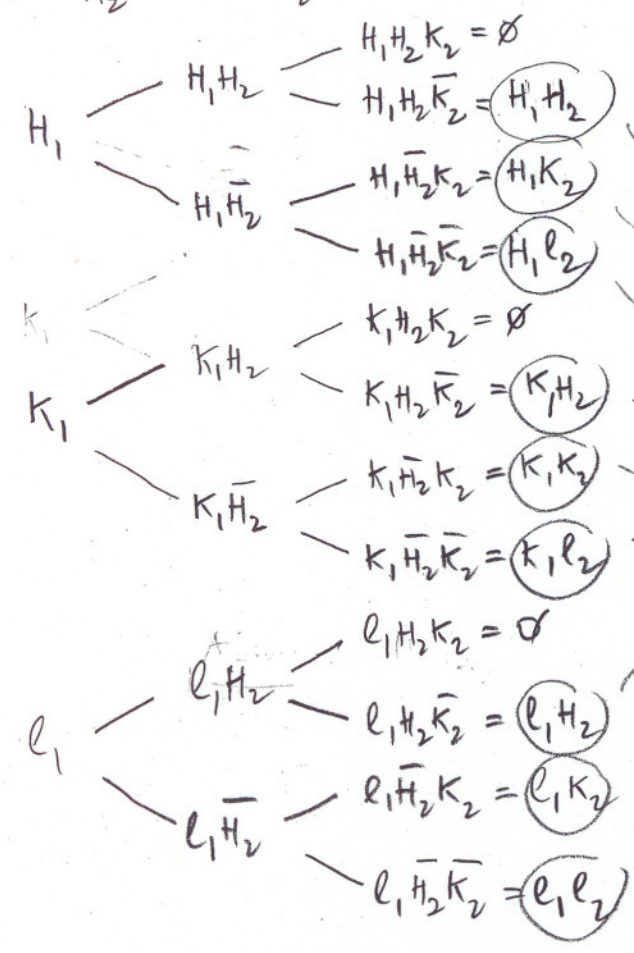 H₁H₂K₂ = ∅
H₁H₂
H₁H₂K̅₂ = H₁H₂
H₁
H₁H̅₂K₂ = H₁K₂
H₁H̅₂
H₁H̅₂K̅₂ = H₁ℓ₂
K₁
K₁H₂K₂ = ∅
K₁H₂
K₁H₂K̅₂ = K₁H₂
K₁
K₁H̅₂K₂ = K₁K₂
K₁H̅₂
K₁H̅₂K̅₂ = K₁ℓ₂
ℓ₁H₂K₂ = ∅
ℓ₁H₂
ℓ₁H₂K̅₂ = ℓ₁H₂
ℓ₁
ℓ₁H̅₂K₂ = ℓ₁K₂
ℓ₁H̅₂
ℓ₁H̅₂K̅₂ = ℓ₁ℓ₂